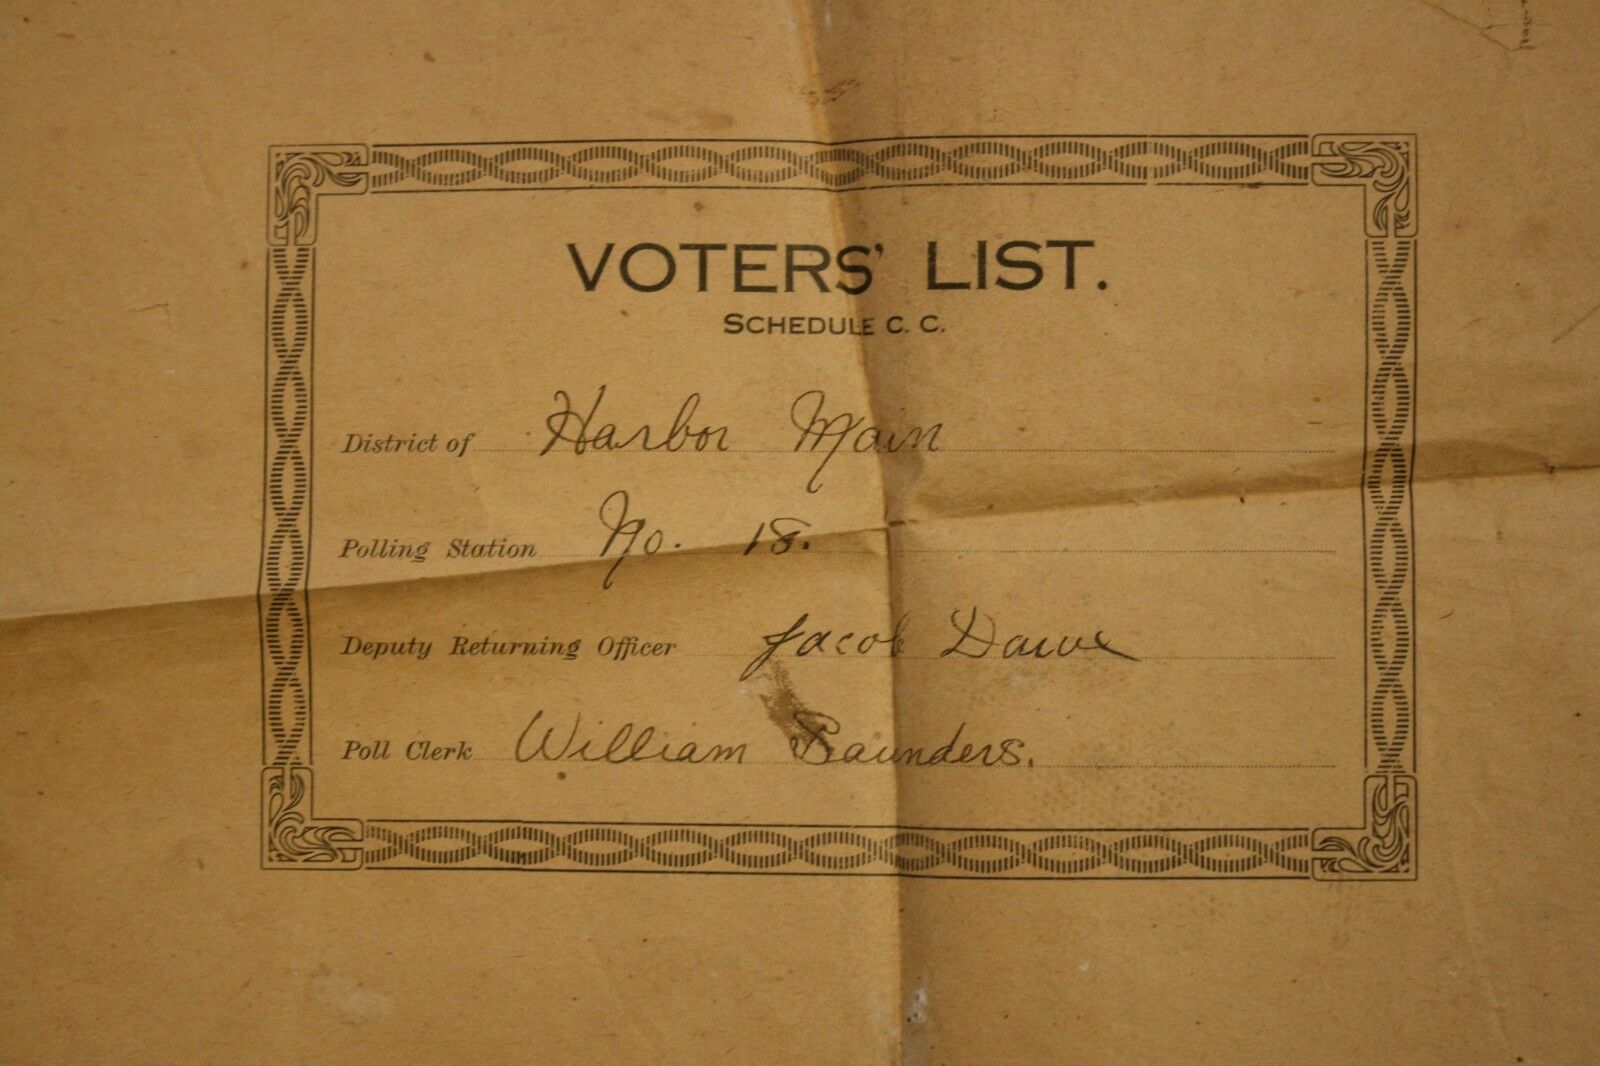 VOTERS' LIST.
SCHEDULE C. C.
District of Harbor Main
Polling Station No. 18.
Deputy Returning Officer Jacob Dawe
Poll Clerk William Saunders.